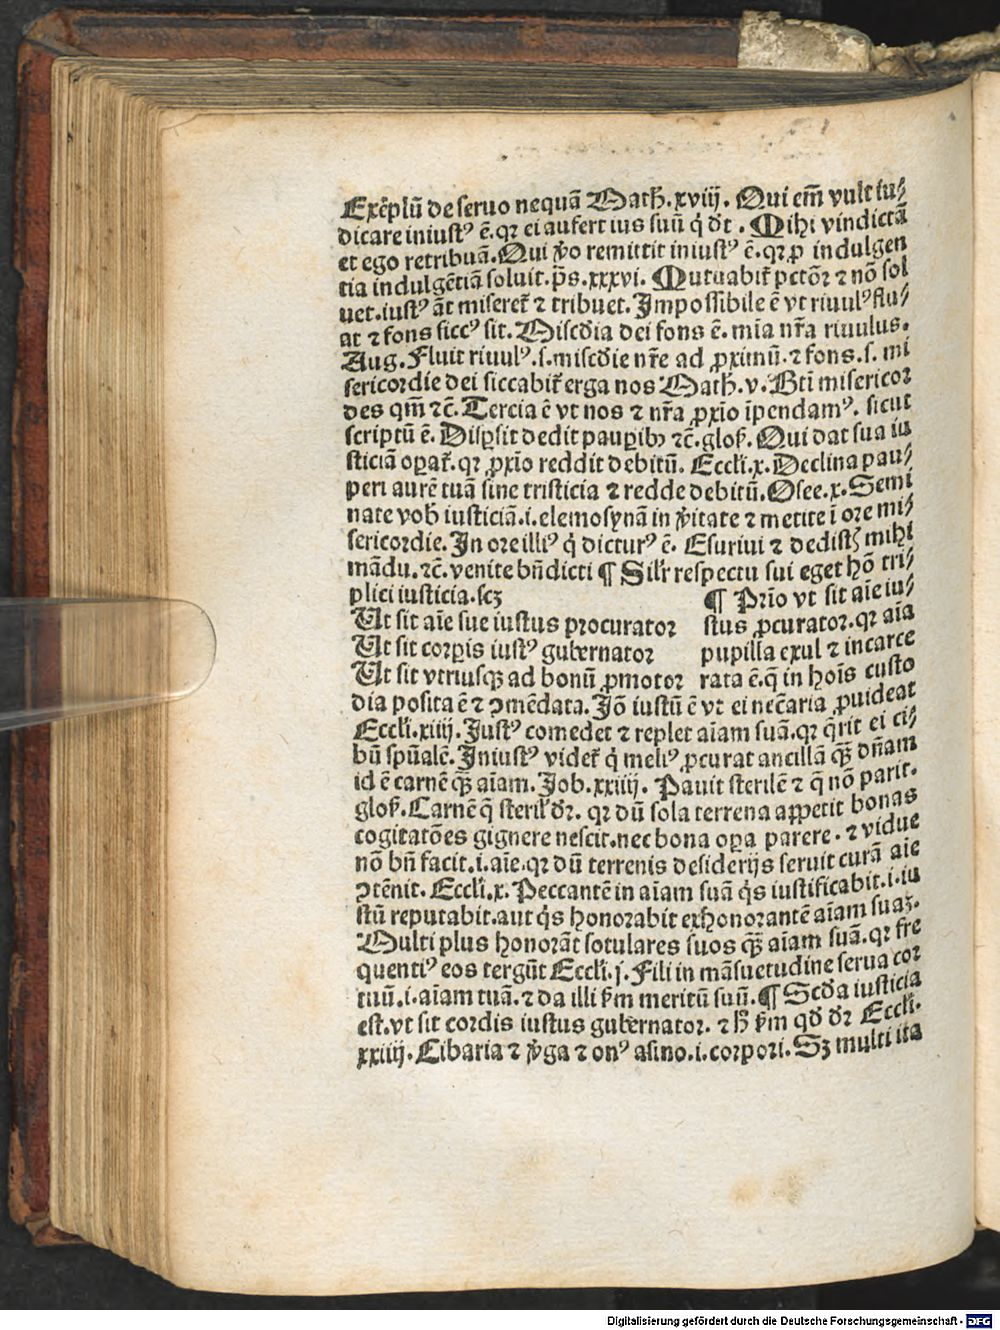 Exēplū de seruo nequā Math̄.xviij. Qui em̄ vult iu/
dicare iniustꝰ ē.qꝛ ei aufert ius suū q̇ dr̄t. Mihi vindictā
et ego retribuā.Qui ꝟo remittit iniustꝰ ē.qꝛ ꝓ indulgen
tia indulgētiā soluit.p̄s.xxxvi. Mutuabit̄ pctōꝛ ⁊ nō sol
uet.iustꝰ āt miseret̄ ⁊ tribuet.Impossibile ē vt riuulꝰ flu/
at ⁊ fons siccꝰ sit.Misc̄dia dei fons ē. mīa nr̄a riuulus.
Aug.Fluit riuulꝰ.s.misc̄die nr̄e ad ꝓximū.⁊ fons.s. mi
sericoꝛdie dei siccabit̄ erga nos Math̄.v.Btī misericoꝛ
des qm̄ ⁊c̄.Tercia ē vt nos ⁊ nr̄a ꝓxīo īpendamꝰ. sicut
scriptū ē. Disꝑsit dedit pauꝑibꝫ ⁊c̄.glos̄. Qui dat sua iu
sticiā oꝑat̄.qꝛ ꝓxīo reddit debitū. Eccl̄i.x.Declina pau/
peri aurē tuā sine tristicia ⁊ redde debitū.Osee.x.Semi
nate vob̄ iusticiā.i.elemosynā in ꝟitate ⁊ metite ī oꝛe mi/
sericoꝛdie.In oꝛe illiꝰ q̇ dicturꝰ ē. Esuriui ⁊ dedistꝭ mihi
mādu.⁊c̄.venite bn̄dicti ¶ Silr̄ respectu sui eget hō tri/
plici iusticia.scꝫ
Ut sit aīe sue iustus pꝛocuratoꝛ
Ut sit coꝛꝑis iustꝰ gubernatoꝛ
Ut sit vtriusqꝫ ad bonū ꝓmotoꝛ
¶ Prīo vt sit aīe iu/
stus ꝓcuratoꝛ.qꝛ aīa
pupilla exul ⁊ incarce
rata ē.q̄ in hoīs custo
dia posita ē ⁊ ꝯmēdata.Jō iustū ē vt ei nec̄aria ꝓuideat
Eccl̄i.xiiij.Justꝰ comedet ⁊ replet aīam suā.qꝛ q̄rit ei ci/
bū spūalē.Iniustꝰ videt̄ q̇ meliꝰ ꝓcurat ancillā qꝫ̄ dn̄am
id ē carnē qꝫ̄ aīam.Job.xxiiij. Pauit sterilē ⁊ q̄ nō parit.
glos̄.Carnē q̄ steril̄ dr̄. qꝛ dū sola terrena appetit bonas
cogitatōes gignere nescit.nec bona oꝑa parere.⁊ vidue
nō bn̄ facit.i.aīe.qꝛ dū terrenis desiderijs seruit curā aīe
ꝯtēnit.Eccl̄i.x.Peccantē in aīam suā q̇s iustificabit.i.iu
stū reputabit.aut q̇s honoꝛabit exhonoꝛantē aīam suaꝫ.
Multi plus honoꝛāt sotulares suos qꝫ̄ aīam suā.qꝛ fre
quentiꝰ eos tergūt Eccl̄i.j.Fili in māsuetudine serua coꝛ
tuū.i.aīam tuā.⁊ da illi ẜm meritū suū.¶ Sc̄da iusticia
est.vt sit coꝛdis iustus gubernatoꝛ. ⁊ h̄ ẜm qd̄ dr̄ Eccl̄i.
xxiiij.Cibaria ⁊ ꝟga ⁊ onꝰ asino.i.coꝛpoꝛi.Sꝫ multi ita
Digitalisierung gefördert durch die Deutsche Forschungsgemeinschaft - DFG